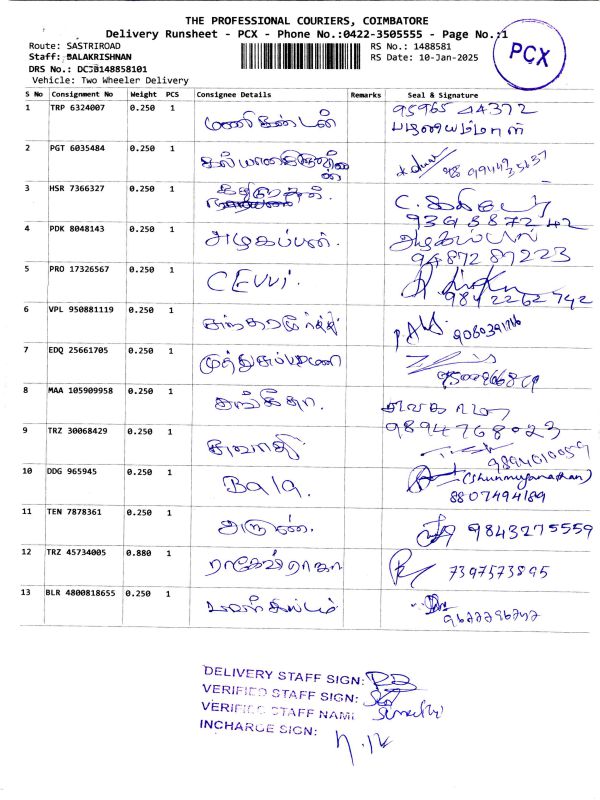 THE PROFESSIONAL COURIERS, COIMBATORE
Delivery Runsheet - PCX - Phone No.:0422-3505555 - Page No.:1
Route: SASTRIROAD
RS No.: 1488581
Staff: BALAKRISHNAN
RS Date: 10-Jan-2025
PCX
DRS No.: DCJB148858101
Vehicle: Two Wheeler Delivery
S No Consignment No Weight PCS Consignee Details Remarks Seal & Signature
1 TRP 6324007 0.250 1 மணிகண்டன் 95965 44372
பழனியம்மாள்
2 PGT 6035484 0.250 1
3 HSR 7366327 0.250 1
9363887242
4 PDK 8048143 0.250 1 அழகப்பன். அழகப்பன்
9487287223
5 PRO 17326567 0.250 1
9842262742
6 VPL 950881119 0.250 1
7 EDQ 25661705 0.250 1 முத்துசுப்பமணி
8 MAA 105909958 0.250 1 சங்கீதா.
9894768023
9 TRZ 30068429 0.250 1
9894010059
10 DDG 965945 0.250 1 Bala. (Shunmuganathan)
8807494189
11 TEN 7878361 0.250 1 அருண். 9843275559
12 TRZ 45734005 0.880 1 ராகேஷ்ராஜா 7397573895
13 BLR 4800818655 0.250 1
DELIVERY STAFF SIGN:
VERIFIED STAFF SIGN:
VERIFIED STAFF NAME
INCHARGE SIGN: